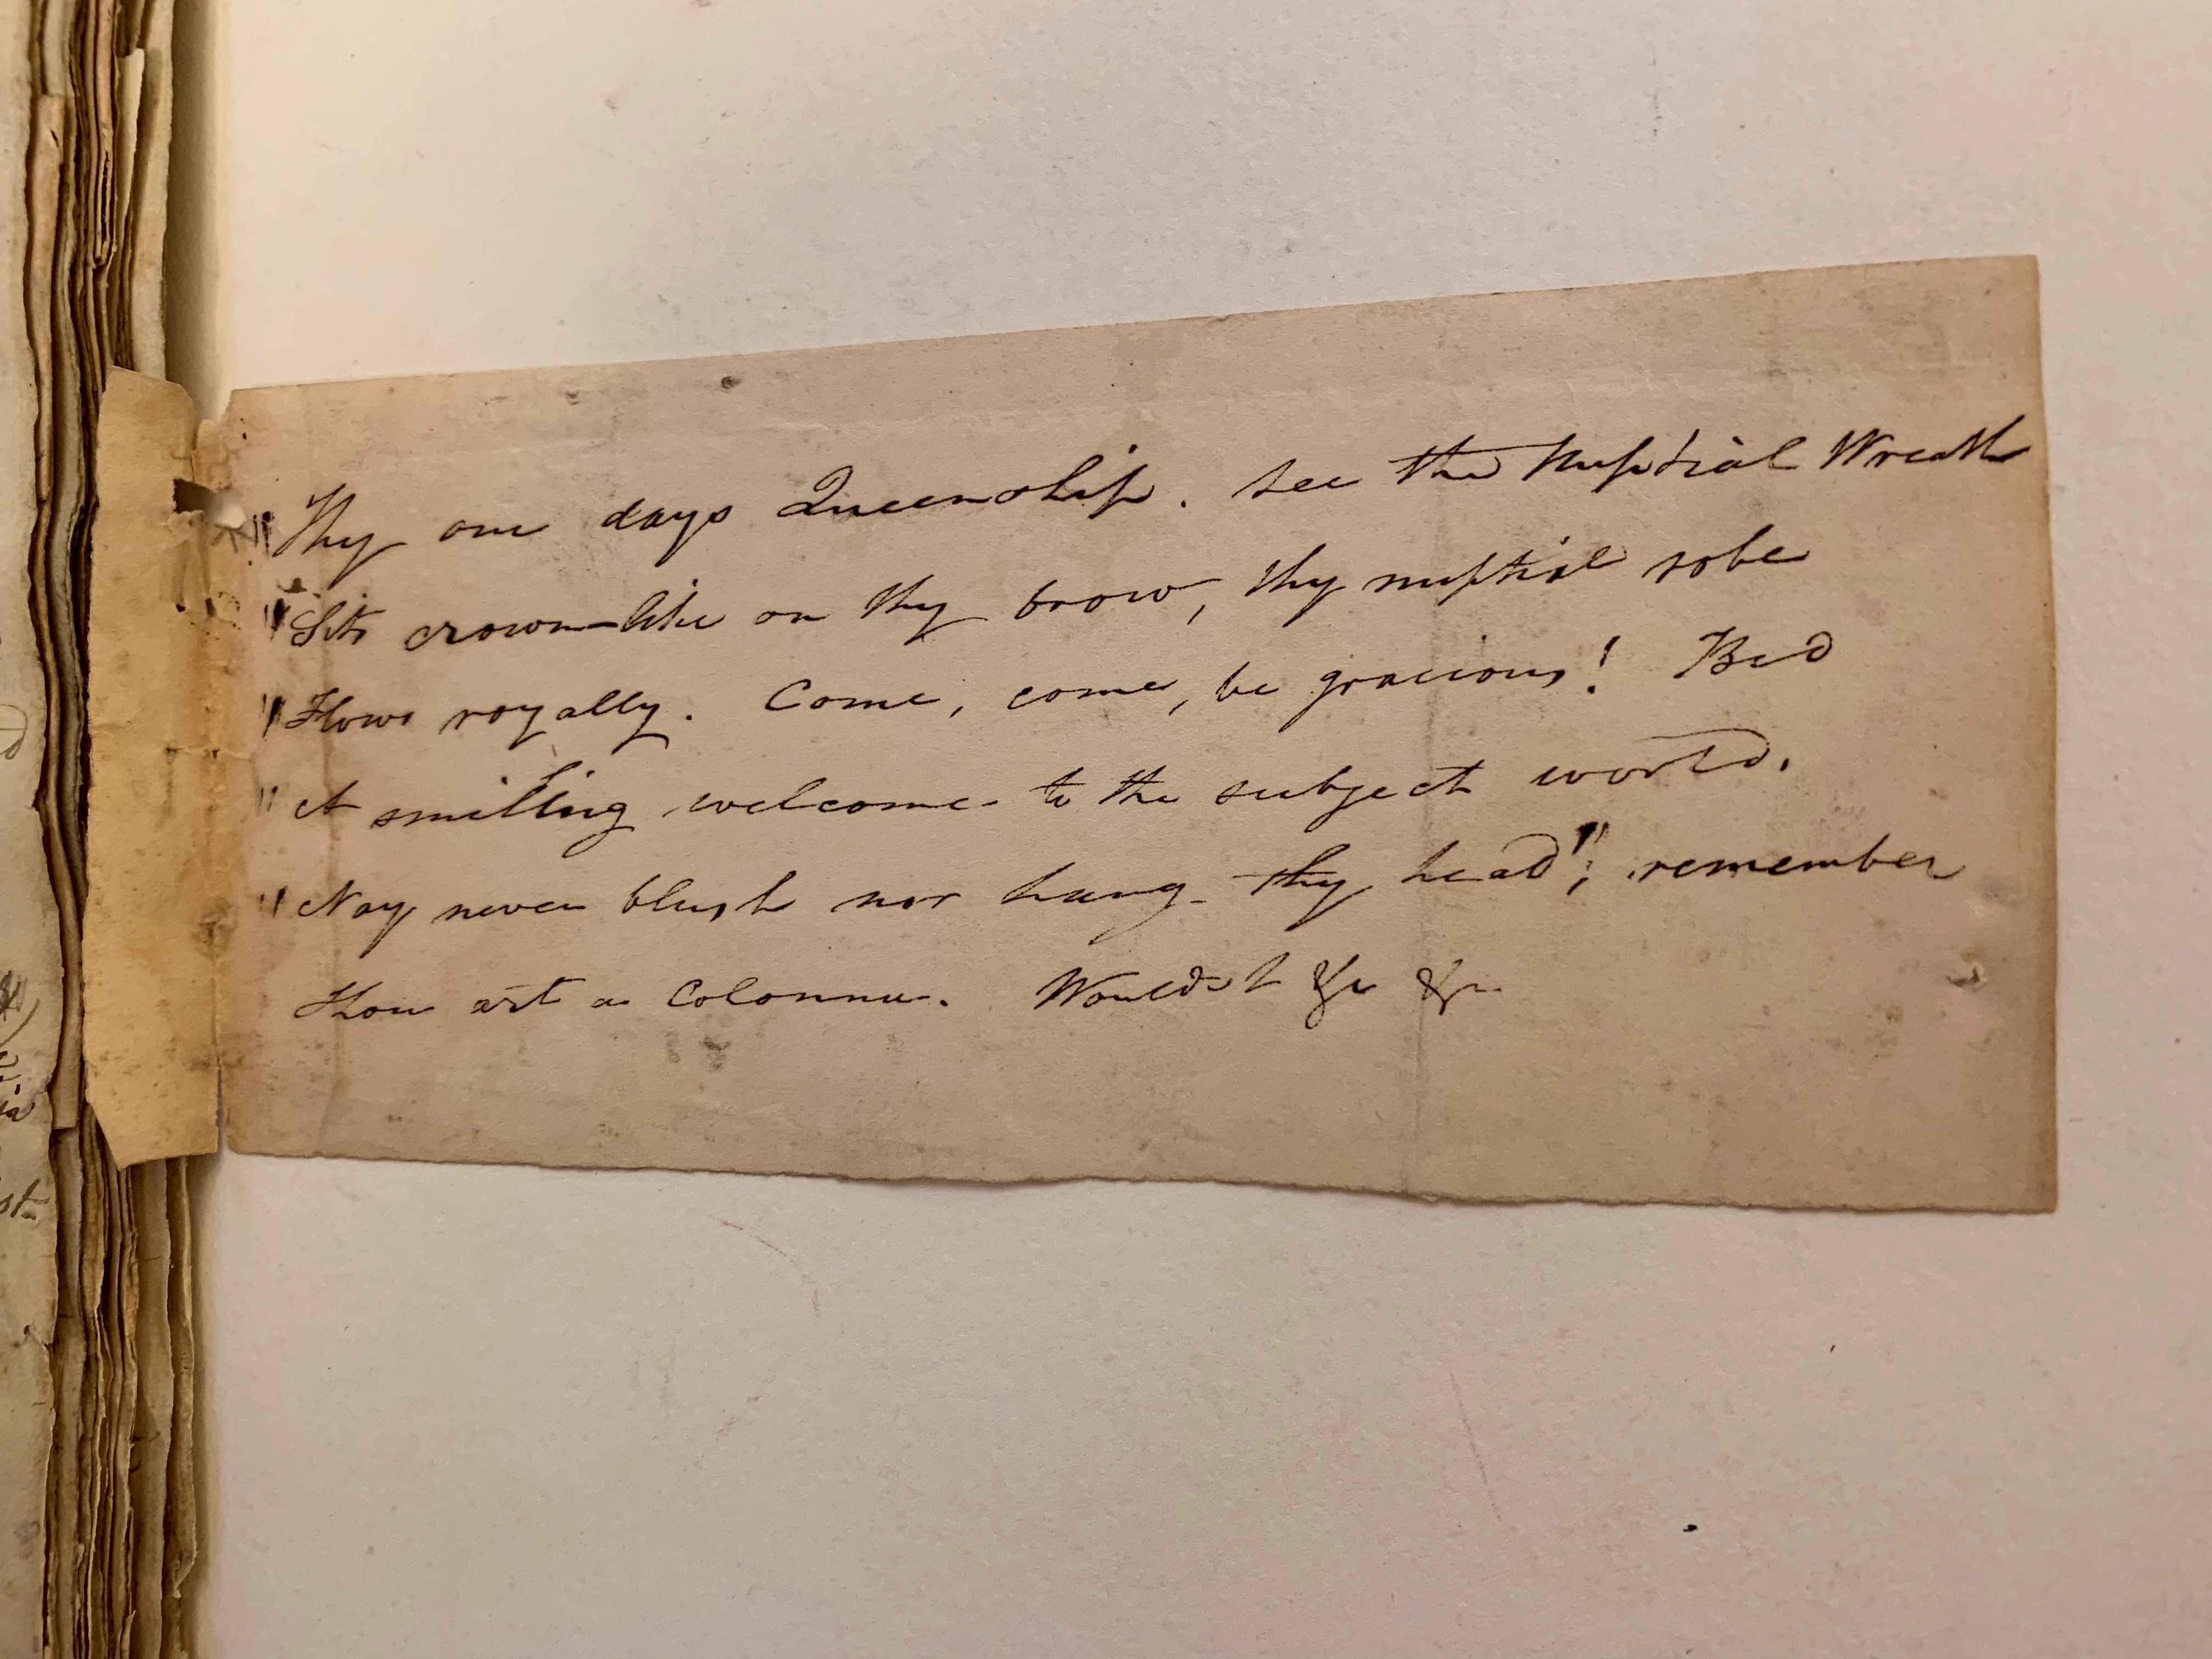 "Thy one days Queenship. See the Nuptial Wreath
"Sits crown-like on thy brow, thy nuptial robe
"Flows royally. Come, come, be gracious! Bid
"A smiling welcome to the subject world.
"Nay never blush nor hang thy head"; remember
Thou art a Colonna. Wouldst &c &c